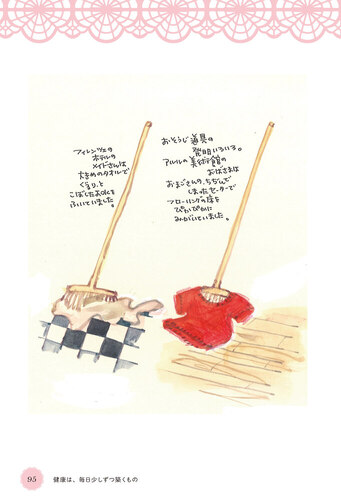 フィレンツェの
ホテルの
メイドさんは
大きめのタオルで
くるりと
こぼしたお水を
ふいていました。
おそうじ道具は
発明いろいろ。
アルルの美術館の
おばさまは
おまごさんの、ちぢんで
しまったセーターで
フローリングの床を
ぴかぴかに
みがいていました。
95
健康は、毎日少しずつ築くもの